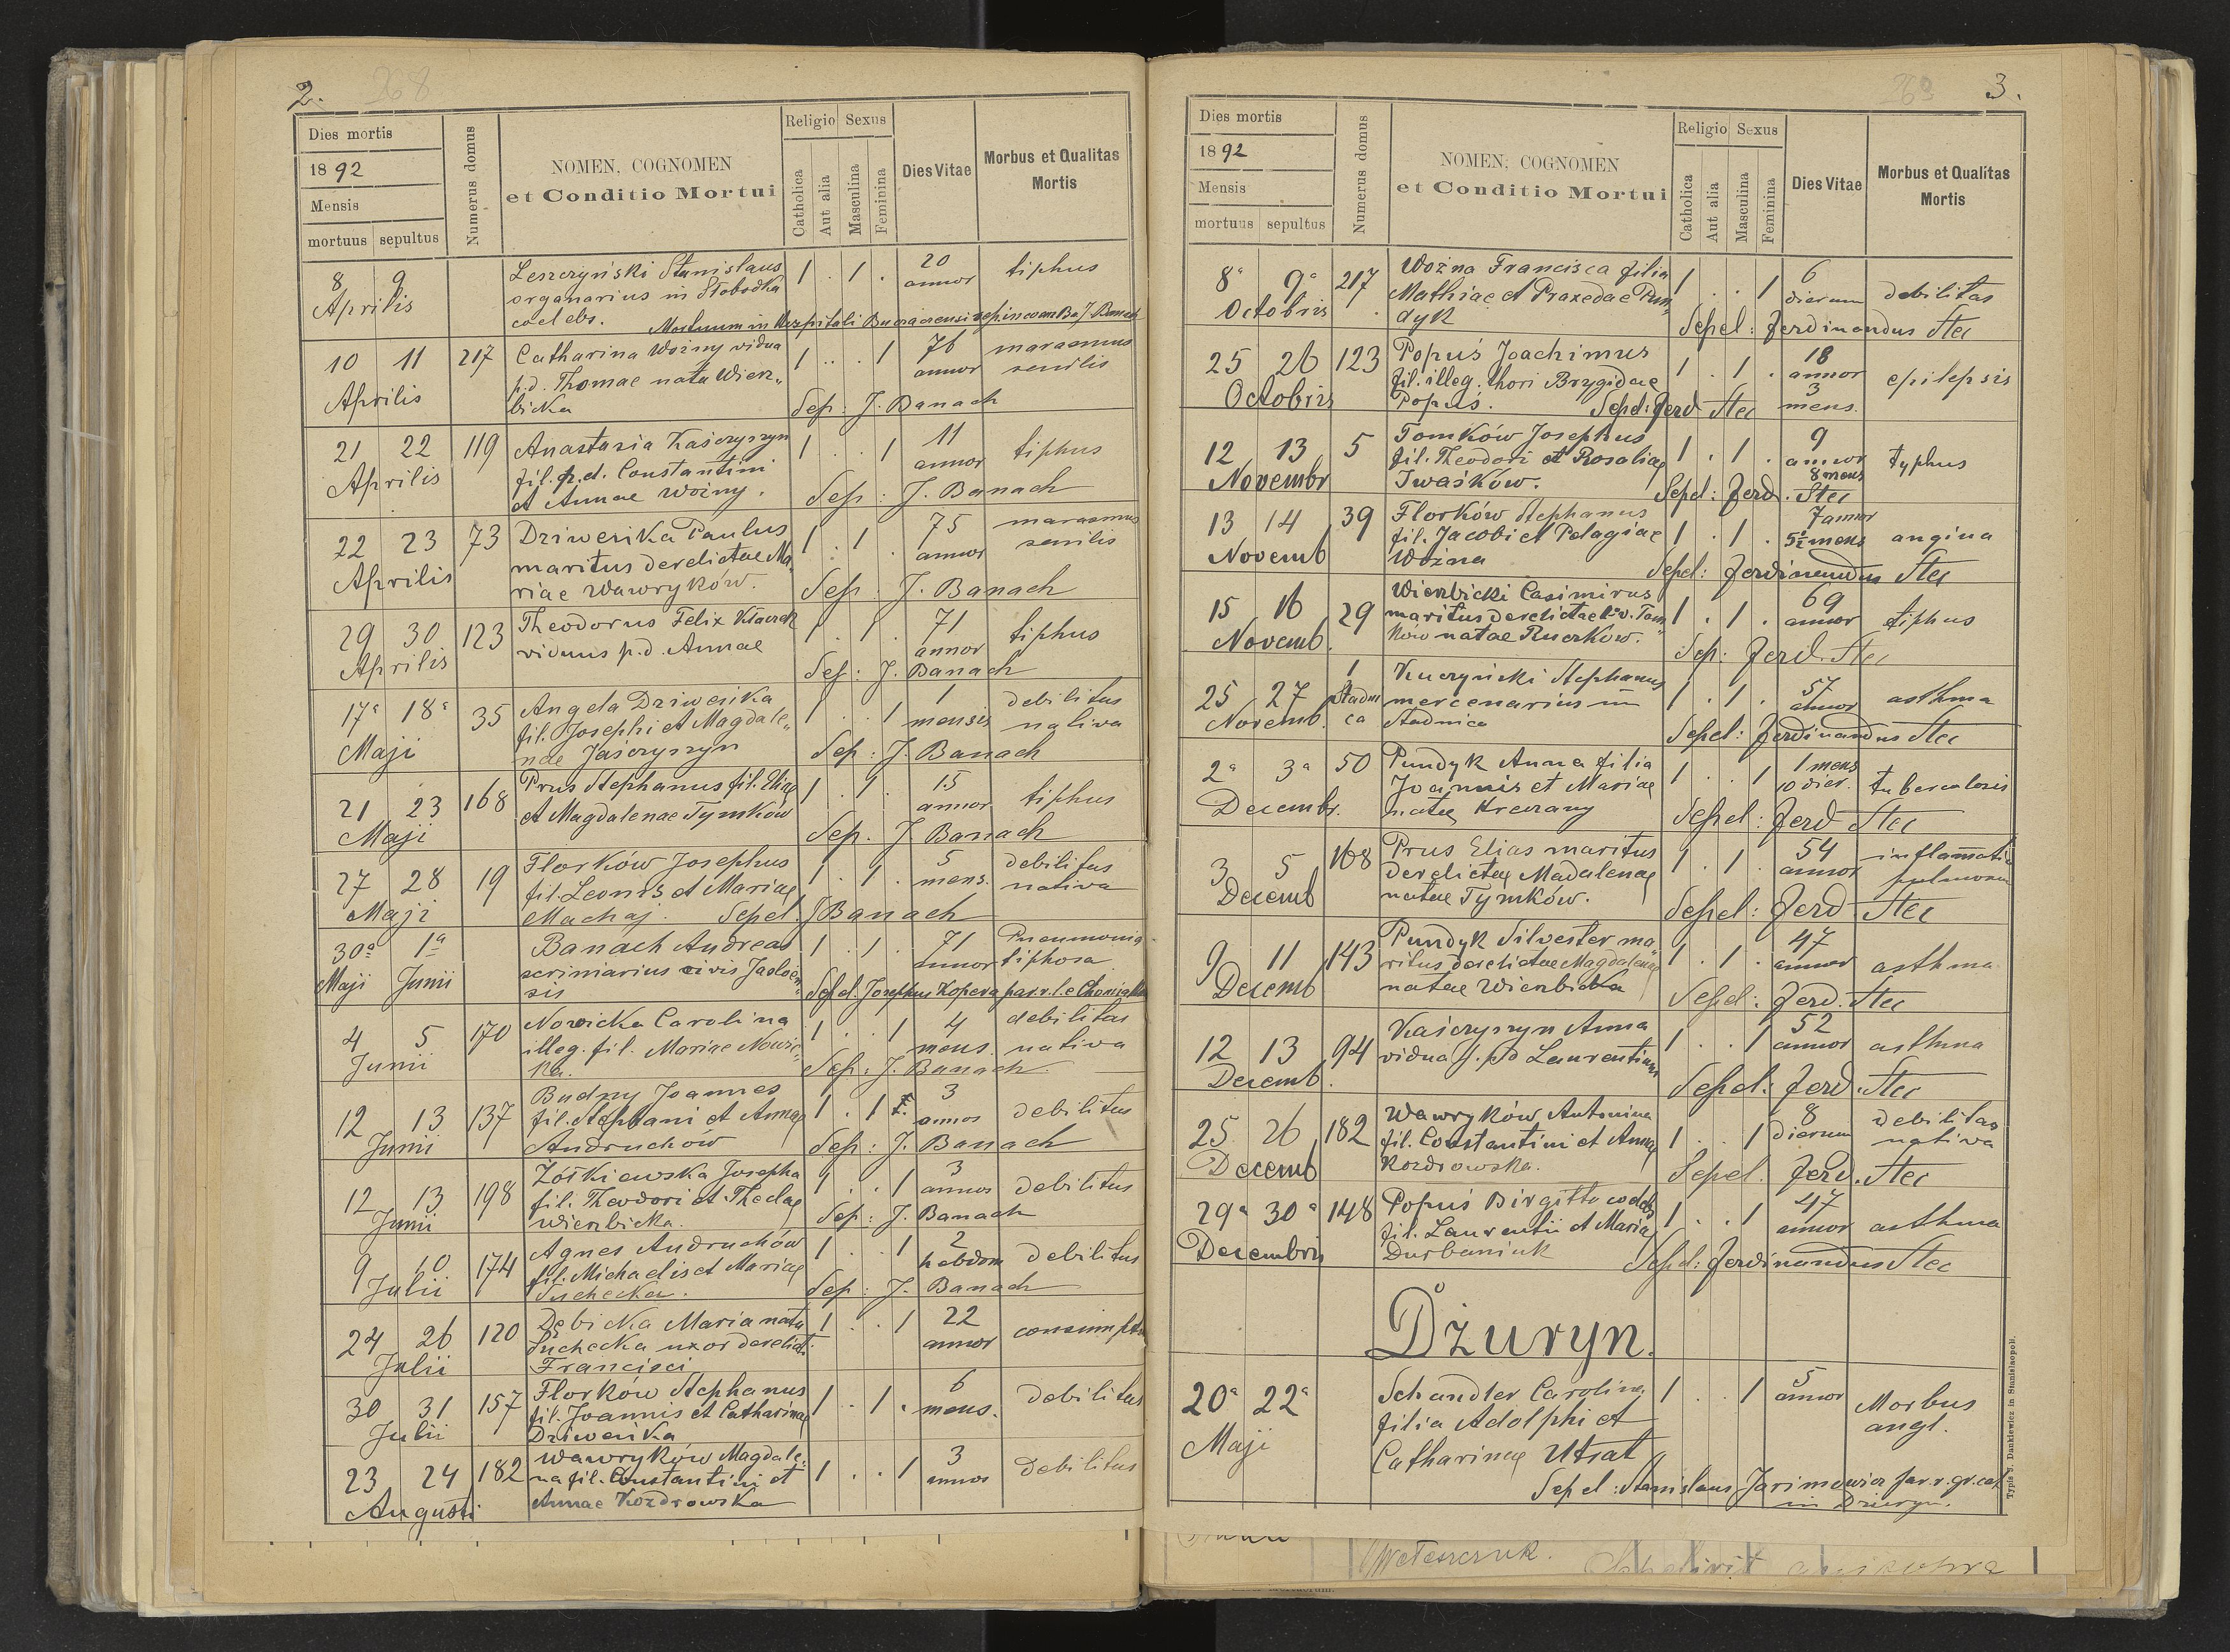 2.
268
Dies mortis
1892
Mensis
mortuus sepultus
Numerus domus
NOMEN, COGNOMEN
et Conditio Mortui
Religio Sexus
Catholica
Aut alia
Masculina
Feminina
Dies Vitae
Morbus et Qualitas
Mortis
8 9 Leszczyński Stanislaus 1 . 1 . 20 tiphus
Aprilis organarius in Słobodka annor
coelebs. Mortuum in Hospitali
10 11 217 Catharina Woźny vidua 1 . . 1 76 marasmus
Aprilis p.d. Thomae nata Wierz„ annor senilis
bicka Sep: J. Banach
21 22 119 Anastazia Kaśczyszyn 1 . . 1 11 tiphus
Aprilis fil. p.d. Constantini annor
et Annae Woźny. Sep: J. Banach
22 23 73 Dziwenka Paulus 1 . 1 . 75 marasmus
Aprilis maritus derelictae Ma„ annor senilis
riae Wawryków. Sep: J. Banach
29 30 123 Theodorus Felix 1 . 1 . 71 tiphus
Aprilis viduus p.d. Annae annor
Sep: J. Banach
17ᵃ 18ᵃ 35 Angela Dziwenka 1 . . 1 1 debilitas
Maji fil. Josephi et Magdale„ mensis nativa
nae Jaśczyszyn Sep: J. Banach
21 23 168 Prus Stephanus fil. Eliae 1 . 1 . 15 tiphus
Maji et Magdalenae Tymków annor
Sep. J. Banach
27 28 19 Florków Josephus 1 . 1 . 5 debilitas
Maji fil. Leonis et Mariae mens. nativa
Machaj. Sepel. J Banach
30ᵃ 1ᵃ Banach Andreas 1 . 1 . 71 Pneumonia
Maji Junii scriniarius civis annor tiphosa
sis Sepel. Josephus Kopera par. r. l.
4 5 170 Nowicka Carolina 1 . . 1 4 debilitas
Junii illeg. fil. Mariae Nowic„ mens. nativa
ka. Sep: J. Banach
12 13 137 Budny Joannes 1 . 1 . 3 debilitas
Junii fil. Stephani et Annae annos
Andruchów Sep: J. Banach
12 13 198 Żółkiewska Josepha 1 . . 1 3 debilitas
Junii fil. Theodori et Theclae annos
Wierzbicka. Sep: J. Banach
9 10 174 Agnes Andruchów 1 . . 1 2 debilitas
Julii fil. Michaelis et Mariae hebdom
Suchecka. Sep: J. Banach
24 26 120 Dębicka Maria nata 1 . . 1 22
Julii Suchecka uxor derelict. annor
Francisci
30 31 157 Florków Stephanus 1 . 1 . 6 debilitas
Julii fil. Joannis et Catharinae mens.
Dziwenka
23 24 182 Wawryków Magdale„ 1 . . 1 3 debilitas
Augusti na fil. Constantini et annos
Annae Kozdrowska
269
3.
Dies mortis
1892
Mensis
mortuus sepultus
Numerus domus
NOMEN, COGNOMEN
et Conditio Mortui
Religio Sexus
Catholica
Aut alia
Masculina
Feminina
Dies Vitae
Morbus et Qualitas
Mortis
8ᵃ 9ᵃ 217 Woźna Francisca filia 1 . . 1 6 debilitas
Octobris Mathiae et Praxedae Pun„ dierum
dyk Sepel: Ferdinandus Stec
25 26 123 Popuś Joachimus 1 . 1 . 18 epilepsis
Octobris fil. illeg. thori Brygidae annor 3
Popuś. Sepel: Ferd Stec mens.
12 13 5 Tomków Josephus 1 . 1 . 9 typhus
Novembr fil. Theodori et Rosaliae annor
Iwaśków. 8 mens
Sepel: Ferd. Stec
13 14 39 Florków Stephanus 1 . 1 . 7 annor angina
Novemb fil. Jacobi et Pelagiae 5½ mens
Woźna Sepel: Ferdinandus Stec
15 16 29 Wierzbicki Casimirus 1 . 1 . 69 tiphus
Novemb. maritus derelictae annor
ków natae Ruczków. Sep: Ferd. Stec
25 27 1 Stadni Kuczyński Stephanus 1 . 1 . 57 asthma
Novemb. ca mercenarius in annor
Stadnica Sepel: Ferdinandus Stec
2ᵃ 3ᵃ 50 Pundyk Anna filia 1 . . 1 1 mens tuberculosis
Decembr. Joannis et Mariae 10 dier.
natae Sepel: Ferd Stec
3 5 168 Prus Elias maritus 1 . 1 . 54 inflamatio
Decemb derelictae Madalenae annor pulmonum
natae Tymków. Sepel: Ferd Stec
9 11 143 Pundyk Silvester ma„ 1 . 1 . 47 asthma
Decemb ritus derelictae Magdalenae annor
natae Wierzbicka Sepel: Ferd. Stec
12 13 94 Kaśczyszyn Anna 1 . . 1 52 asthma
Decemb. vidua p. p.d Laurentium annor
Sepel: Ferd. Stec
25 26 182 Wawryków Antonina 1 . . 1 8 debilitas
Decemb fil. Constantini et Annae dierum nativa
Kozdrowska. Sepel. Ferd. Stec
29ᵃ 30ᵃ 148 Popuś Birgitta coelebs 1 . . 1 47 asthma
Decembris fil. Laurentii et Mariae annor
Durbaniuk Sepel: Ferdinandus Stec
Dżuryn.
20ᵃ 22ᵃ Schandler Carolina 1 . . 1 5 Morbus
Maji filia Adolphi et annor angl.
Catharinae Utrat
Sepel: Stanislaus Jarimowicz par. r. gr. cat
in Dżuryn.
Typis J. Dankiewicz in Stanislaopoli.